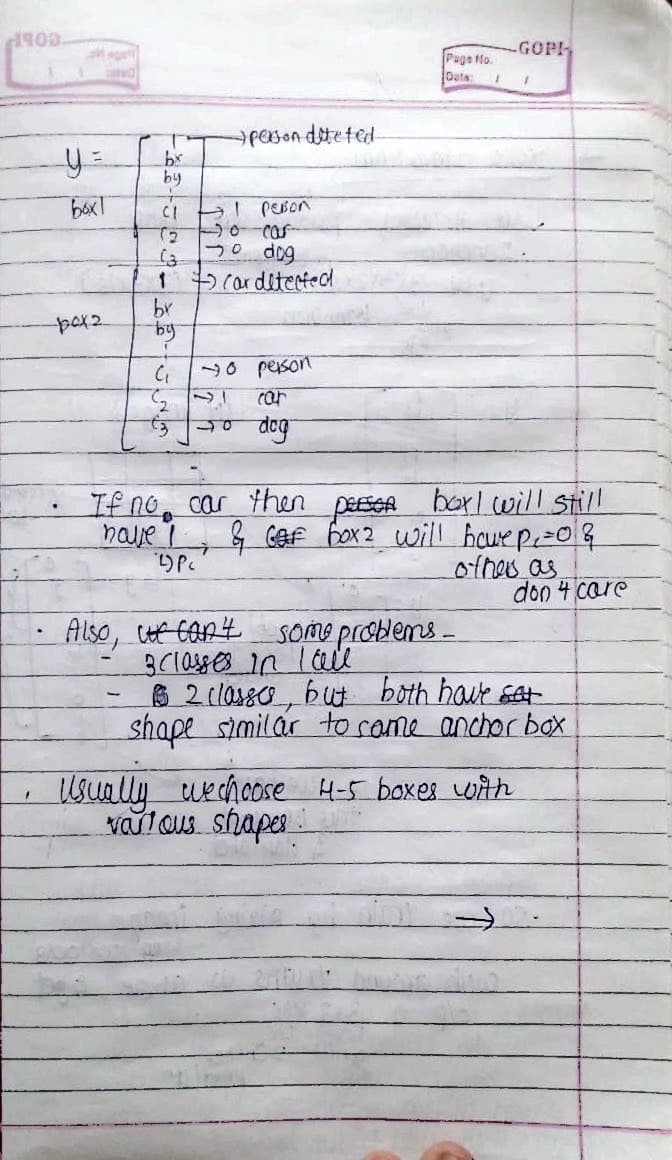 GOPI
Page No.
Date: / /
y = 1 → person deteted
bx
by
box1 c1 → 1 person
c2 → 0 car
c3 → 0 dog
1 → car detected
box2 bx
by
c1 → 0 person
c2 → 1 car
c3 → 0 dog
. If no car then person box1 will still
have 1, & car box2 will have pc=0 &
↳ Pc others as
don't care
. Also, we can't some problems -
- 3 classes in 1 cell
- 2 classes, but both have
shape similar to same anchor box
. Usually we choose 4-5 boxes with
various shapes.
→